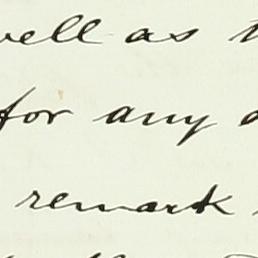 well as
for any
remark